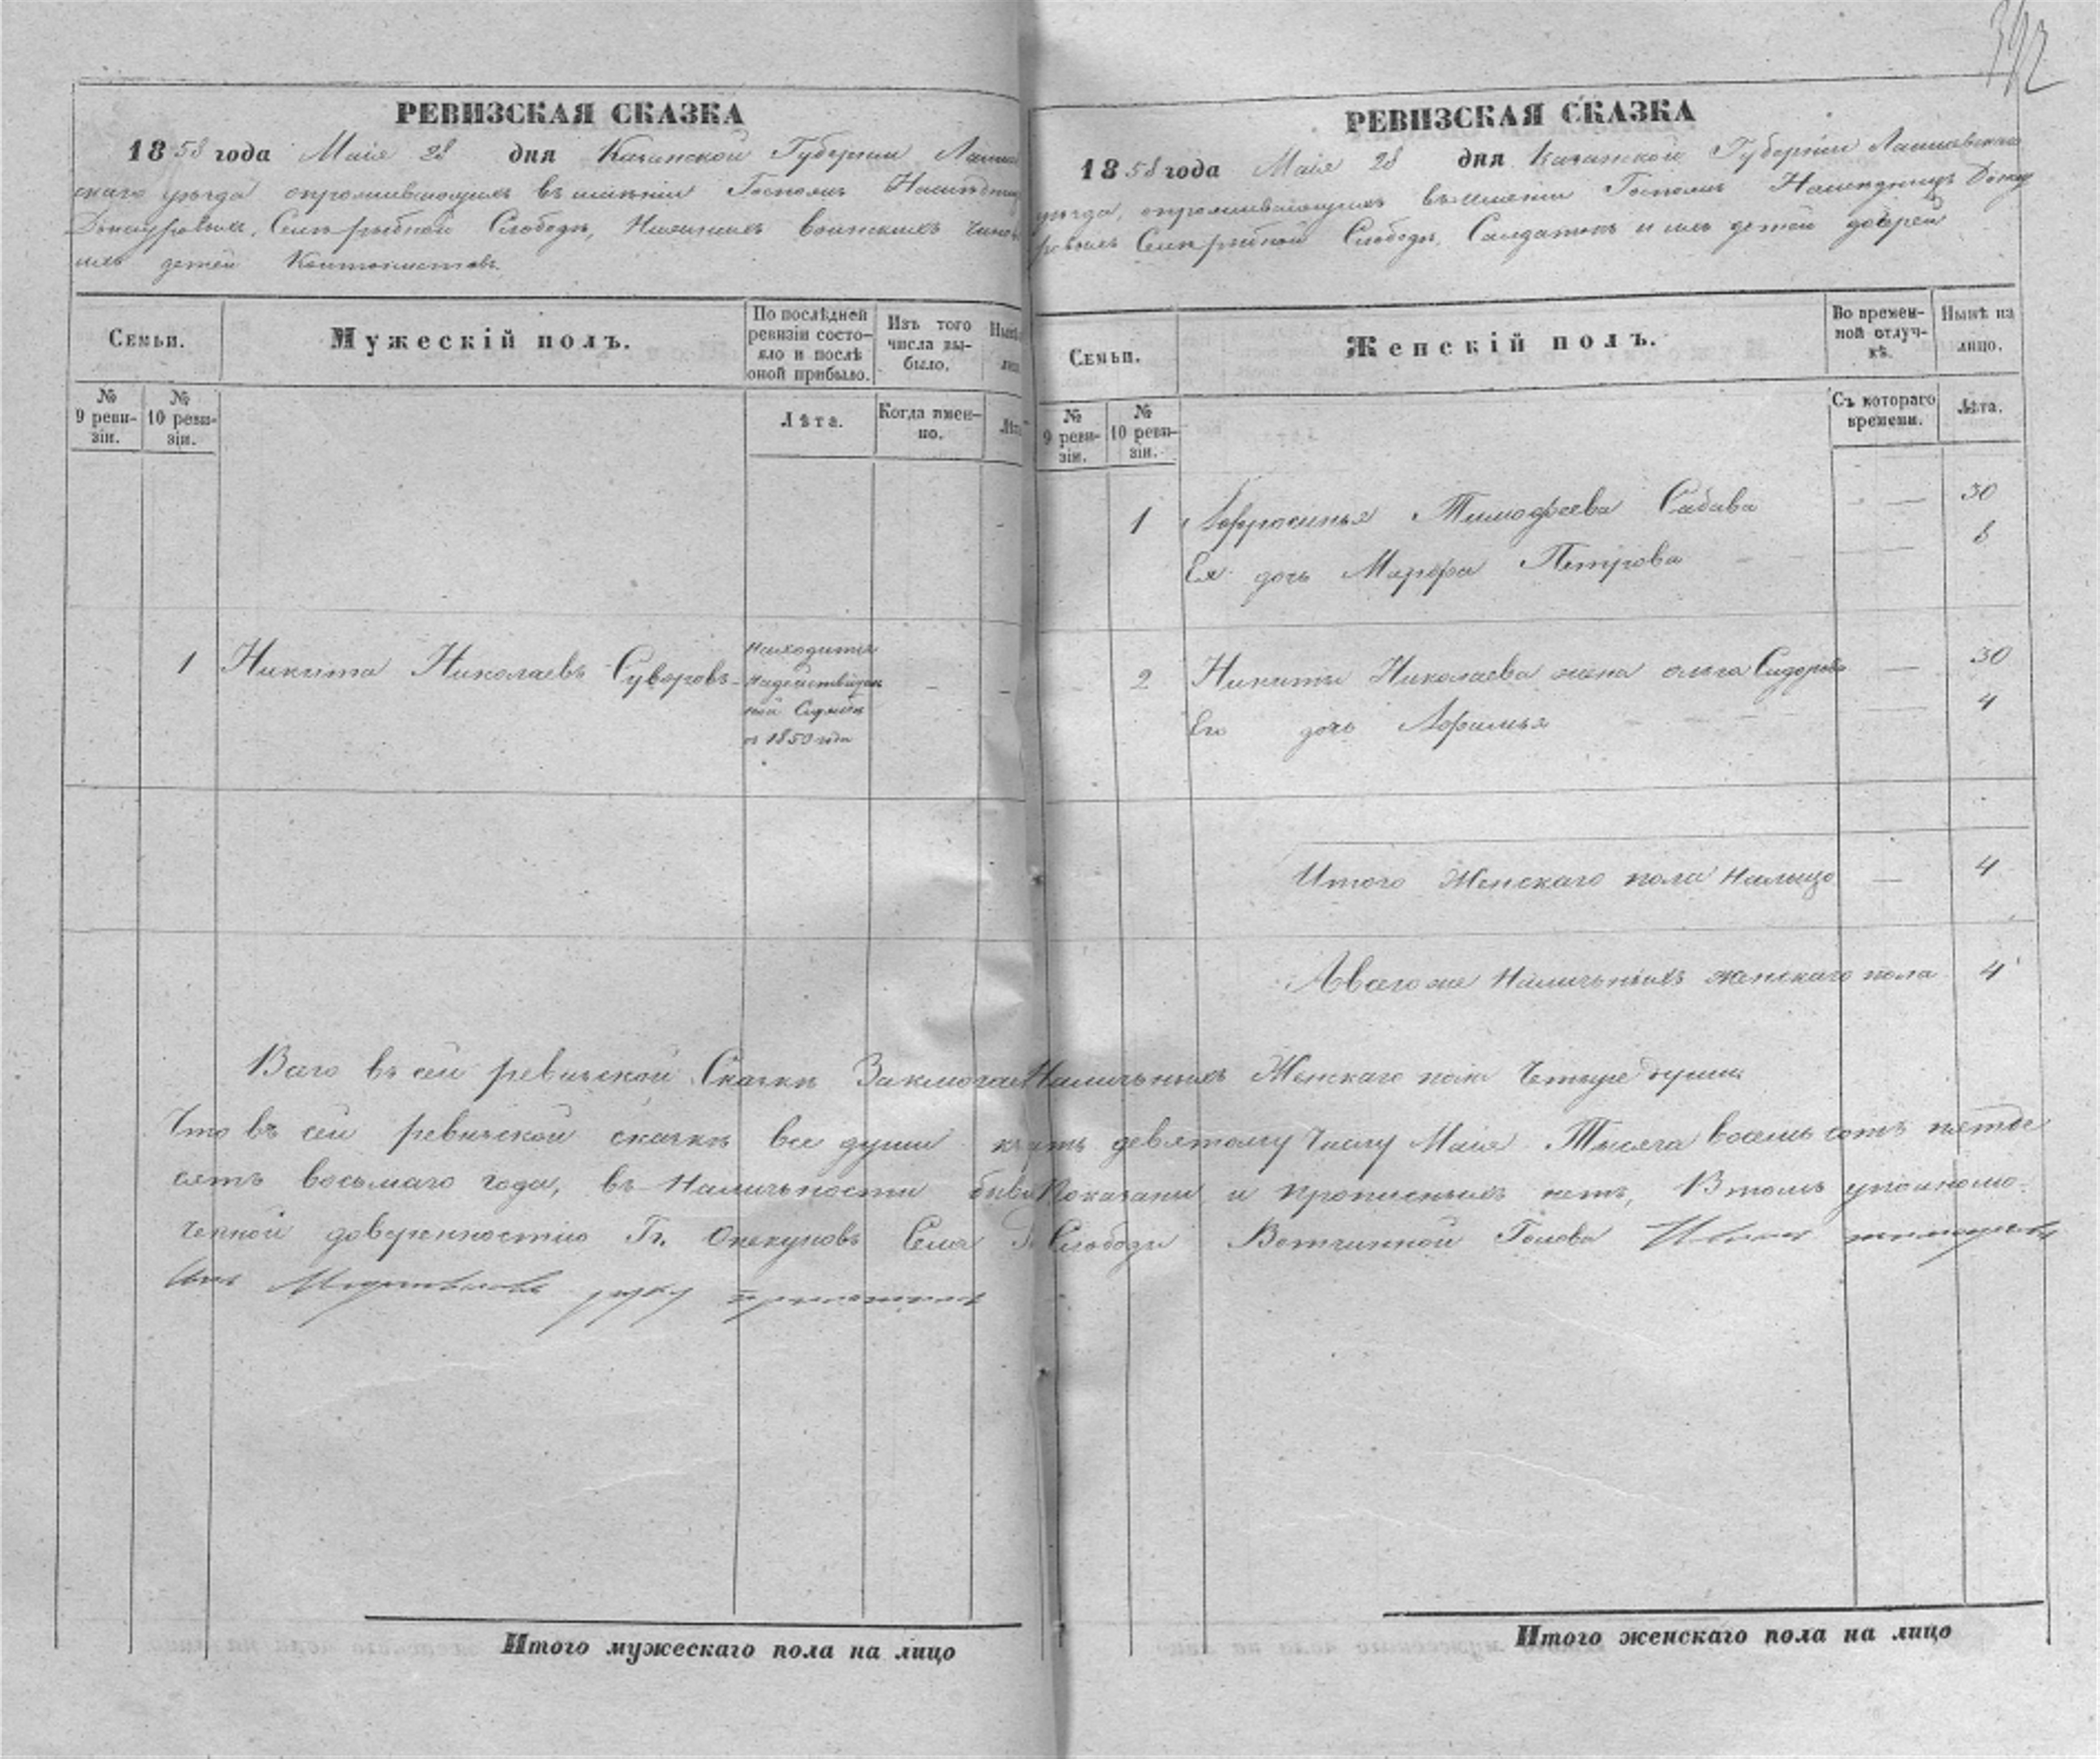 РЕВИЗСКАЯ СКАЗКА
1858 года Маія 28 дня Казанской Губерніи Лаишев
скаго уезда опроживающихъ въ имѣніи Господъ Наследниц
Дикуровыхъ, Села рыбной Слободы, Нижнихъ воинскихъ чинов
ихъ детей Контонистовъ
Семьи.
Мужескій полъ.
По послѣдней ревизіи состо-
яло и послѣ оной прибыло.
Изъ того числа вы-
было.
Нынѣ
№ 9 реви-
зіи.
№ 10 реви-
зіи.
Лѣта.
Когда имен-
но.
Лѣта
1 Никита Николаевъ Суворовъ
находится
надействитель
ной Службе
с 1850 года
392
РЕВИЗСКАЯ СКАЗКА
1858 года Маія 28 дня Казанской Губерніи Лаишевскаго
уезда, опроживающихъ въ имении Господъ Наследницъ
Села рыбной Слободы, Салдатокъ и ихъ детей дочерей
Семьи.
Женскій полъ.
Во времен-
ной отлуч-
кѣ.
Нынѣ на
лицо.
№ 9 реви-
зіи.
№ 10 реви-
зіи.
Съ котораго
времени.
Лѣта.
1 Афросинья Тимофеева — 30
Ея дочь Марфа Петрова — 8
2 Никиты Николаева жена олга Сидорова — 30
Его дочь Афимья — 4
Итого Женскаго пола Налицо — 4
Авсего же Наличныхъ женскаго пола 4
Всего въ сей ревизской Сказки Заключае Наличьныхъ Женскаго пола Четыре души
Что въ сей ревизской сказки все души девятому Числу Маія Тысяча восемь сотъ пятьде
сятъ восьмаго года, въ Наличьности Показаны и прописныхъ нетъ, Втомъ уполномо
ченной доверенностію Гг. Опекуновъ Села Слободы Вотчинной Голова Иванъ
руку приложилъ
Итого мужескаго пола на лицо
Итого женскаго пола на лицо